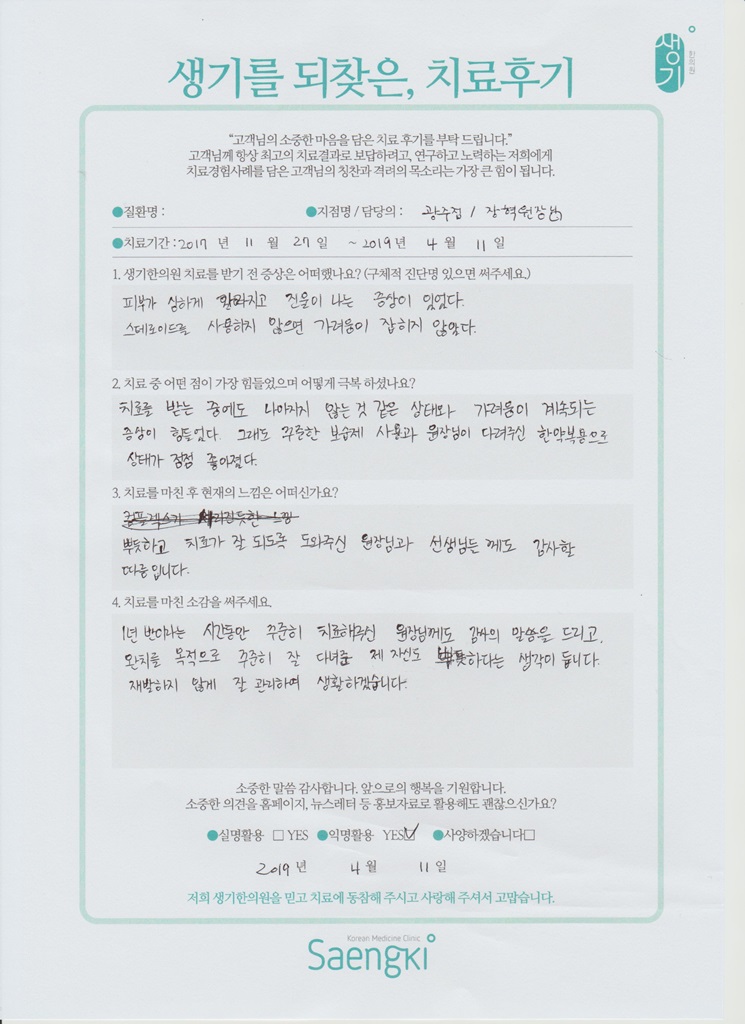 생기를 되찾은, 치료후기
생기
한의원
“고객님의 소중한 마음을 담은 치료 후기를 부탁 드립니다.”
고객님께 항상 최고의 치료결과로 보답하려고, 연구하고 노력하는 저희에게
치료경험사례를 담은 고객님의 칭찬과 격려의 목소리는 가장 큰 힘이 됩니다.
●질환명 : ●지점명 / 담당의 : 광주점 / 장혁원장님
●치료기간 : 2017 년 11 월 27 일 ~ 2019 년 4 월 11 일
1. 생기한의원 치료를 받기 전 증상은 어떠했나요? (구체적 진단명 있으면 써주세요.)
피부가 심하게 갈라지고 진물이 나는 증상이 있었다.
스테로이드를 사용하지 않으면 가려움이 잡히지 않았다.
2. 치료 중 어떤 점이 가장 힘들었으며 어떻게 극복 하셨나요?
치료를 받는 중에도 나아지지 않는것 같은 상태와 가려움이 계속되는
증상이 힘들었다. 그래도 꾸준한 보습제 사용과 원장님이 다려주신 한약복용으로
상태가 점점 좋아졌다.
3. 치료를 마친 후 현재의 느낌은 어떠신가요?
컴플렉스가 사라진듯한 느낌
뿌듯하고 치료가 잘 되도록 도와주신 원장님과 선생님든께도 감사할
따름입니다.
4. 치료를 마친 소감을 써주세요.
1년 반이라는 시간동안 꾸준히 치료해주신 원장님께도 감사의 말씀을 드리고,
완치를 목적으로 꾸준히 잘 다녀준 제 자신도 뿌듯하다는 생각이 듭니다.
재발하지 않게 잘 관리하며 생활하겠습니다.
소중한 말씀 감사합니다. 앞으로의 행복을 기원합니다.
소중한 의견을 홈페이지, 뉴스레터 등 홍보자료로 활용해도 괜찮으신가요?
●실명활용 □ YES ●익명활용 YES☑ ●사양하겠습니다□
2019 년 4 월 11 일
저희 생기한의원을 믿고 치료에 동참해 주시고 사랑해 주셔서 고맙습니다.
Korean Medicine Clinic
Saengki